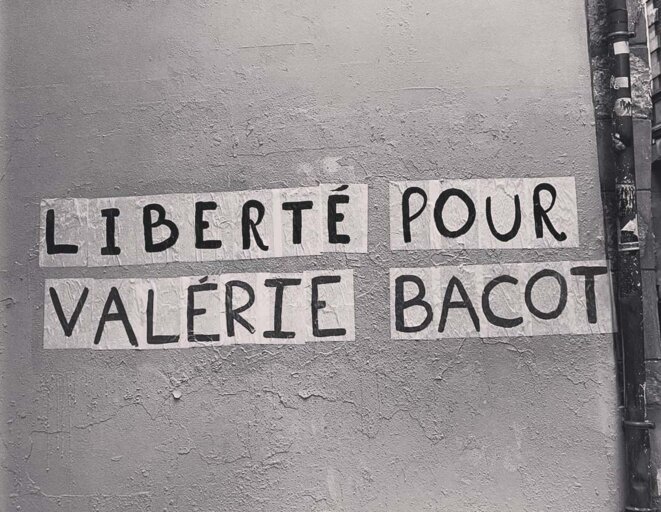 LIBERTÉ POUR
VALÉRIE BACOT